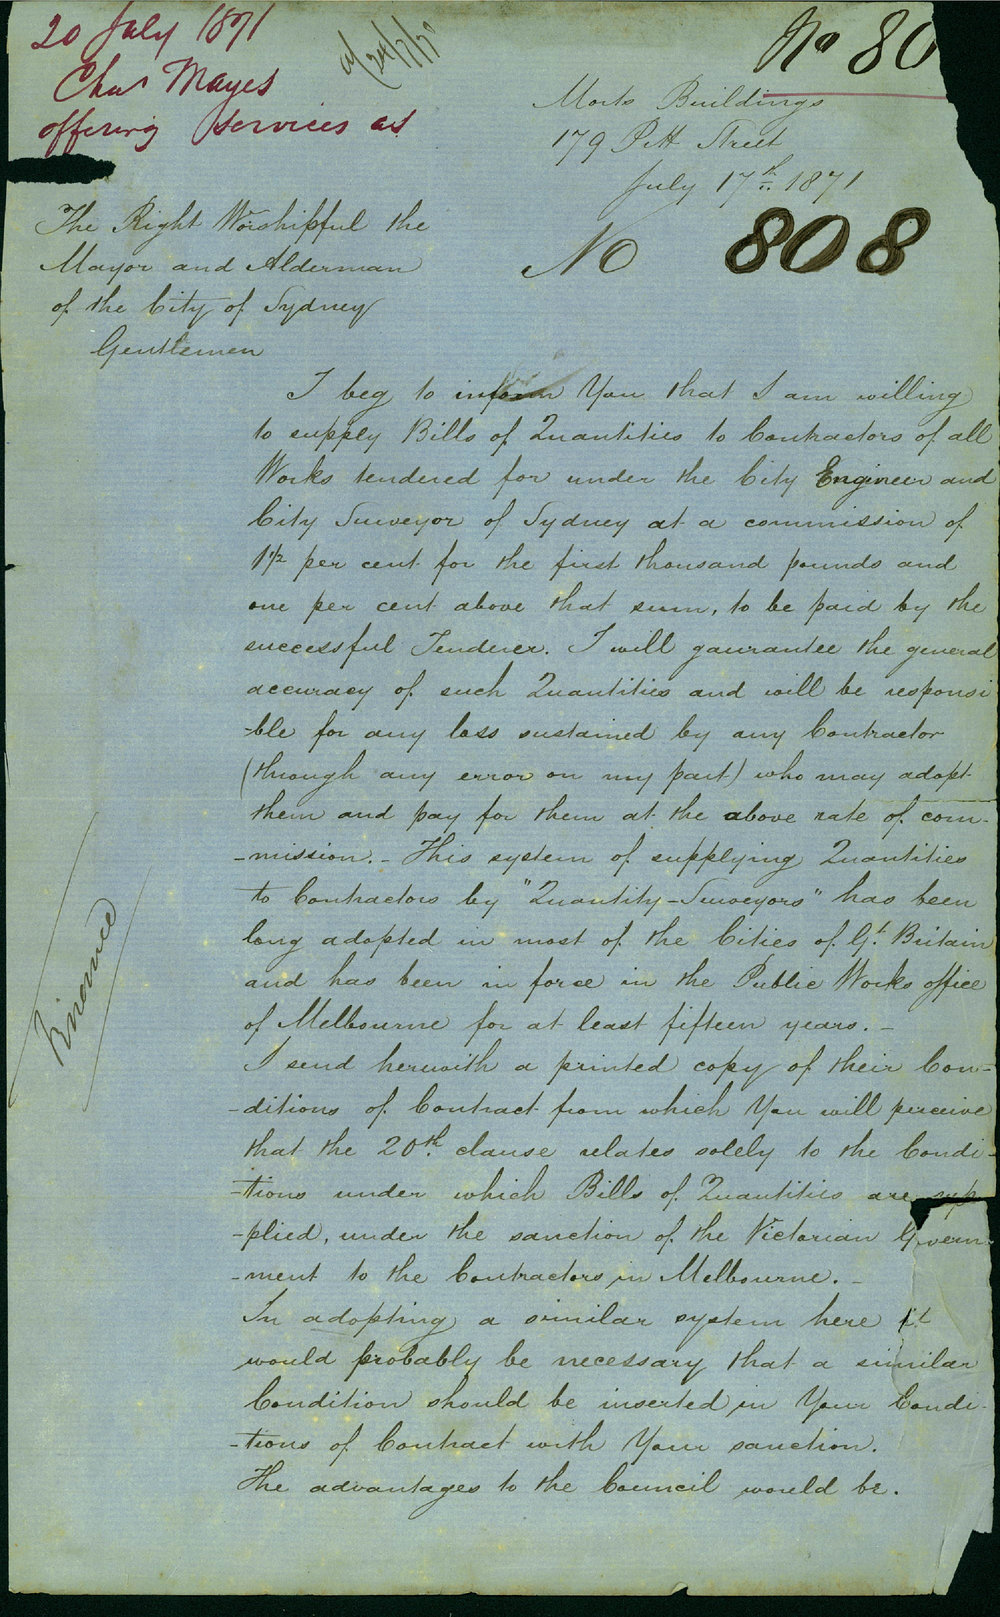 20 July 1871
Chas Mayes
offering services as
No 80
Morts Buildings
179 Pitt Street
July 17th 1871
The Right Worshipful the
Mayor and Alderman
of the City of Sydney
No 808
Gentlemen
I beg to inform You that I am willing
to supply Bills of Quantities to Contractors of all
Works tendered for under the City Engineer and
City Surveyor of Sydney at a commission of
1 1/2 per cent for the first thousand pounds and
one per cent above that sum, to be paid by the
successful Tenderer. I will gaurantee the general
accuracy of such Quantities and will be responsi
-ble for any loss sustained by any Contractor
(through any error on my part) who may adopt
them and pay for them at the above rate of com-
-mission. - This system of supplying Quantities
to Contractors by "Quantity-Surveyors" has been
long adopted in most of the Cities of Gt. Britain
and has been in force in the Public Works office
of Melbourne for at least fifteen years. -
I send herewith a printed copy of their Con-
-ditions of Contract from which You will perceive
that the 20th. clause relates solely to the Condi-
-tions under which Bills of Quantities are sup
-plied, under the sanction of the Victorian Govern-
-ment to the Contractors in Melbourne. -
In adopting a similar system here it
would probably be necessary that a similar
Condition should be inserted in Your Condi-
-tions of Contract with Your sanction.
The advantages to the Council would be.
Finance